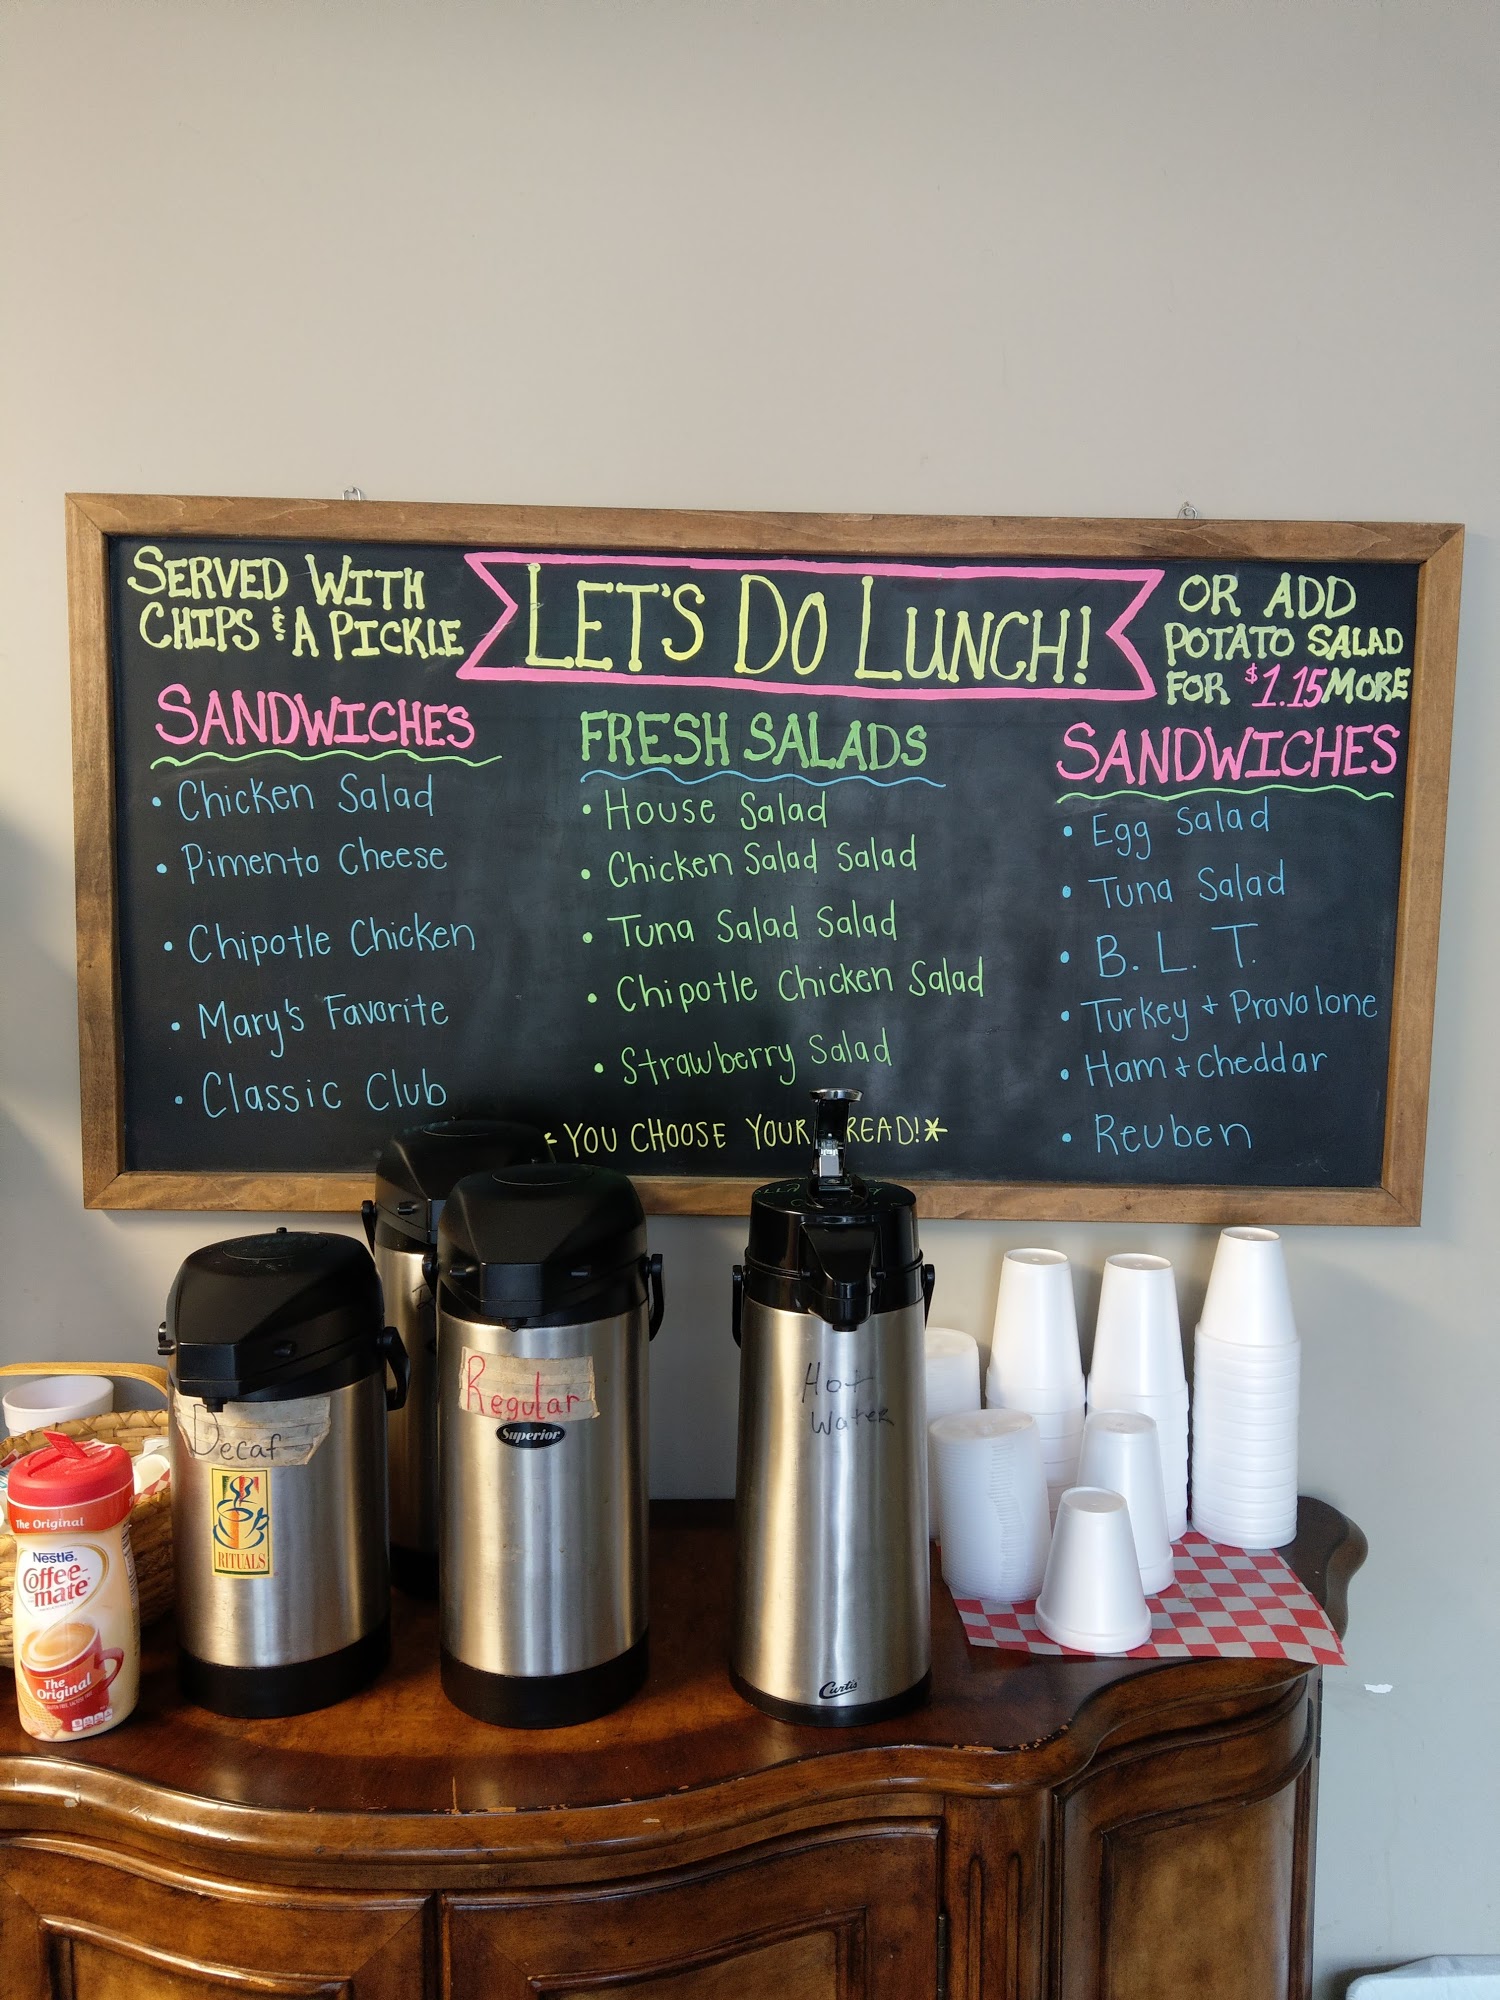 SERVED WITH
CHIPS & A PICKLE
LET'S DO LUNCH!
OR ADD
POTATO SALAD
FOR $1.15 MORE
SANDWICHES
• Chicken Salad
• Pimento Cheese
• Chipotle Chicken
• Mary's Favorite
• Classic Club
FRESH SALADS
• House Salad
• Chicken Salad Salad
• Tuna Salad Salad
• Chipotle Chicken Salad
• Strawberry Salad
*YOU CHOOSE YOUR READ!*
SANDWICHES
• Egg Salad
• Tuna Salad
• B. L. T.
• Turkey + Provolone
• Ham + Cheddar
• Reuben
Decaf
RITUALS
Regular
Superior
Hot
Water
Curtis
The Original
Nestlé
Coffee-
mate
The
Original